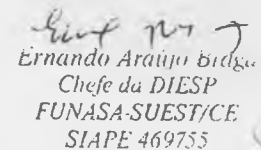 Ernando Araújo Braga
Chefe da DIESP
FUNASA-SUEST/CE
SIAPE 469755